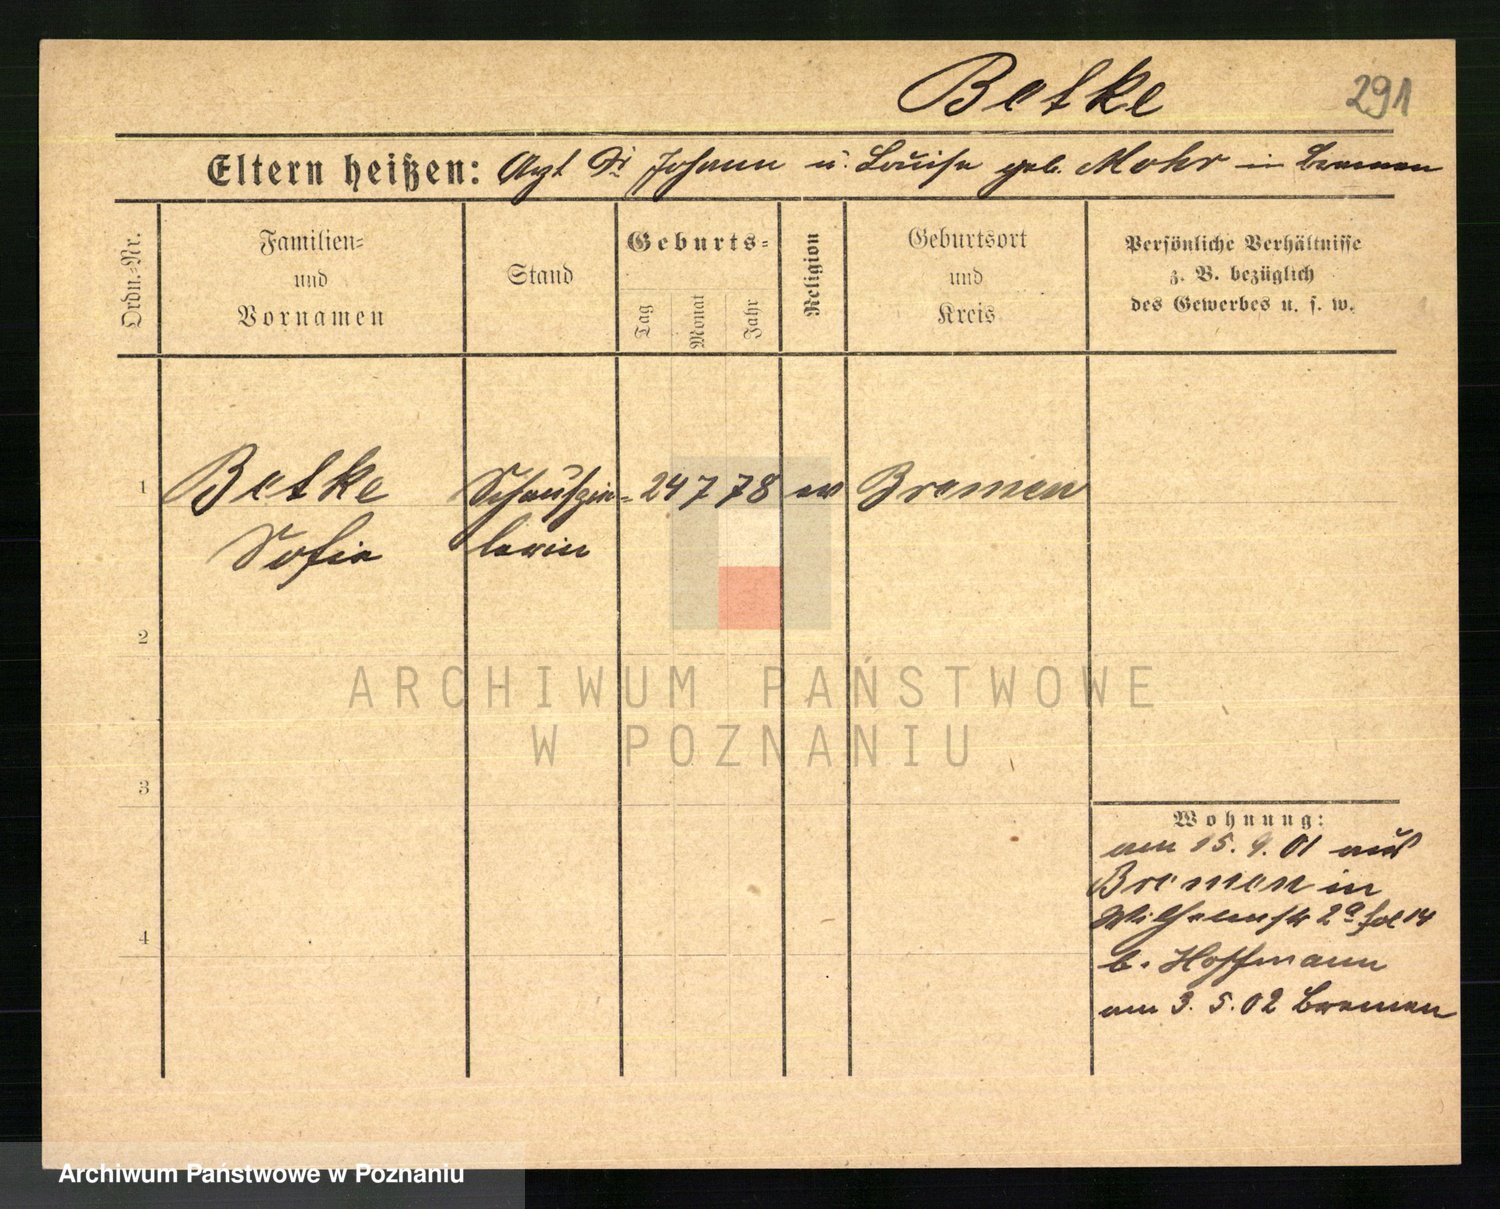 Betke
291
Eltern heißen: Arzt Dr Johann u. Louise geb. Mohr in Bremen
Ordn.-Nr.
Familien-
und
Vornamen
Stand
Geburts-
Tag
Monat
Jahr
Religion
Geburtsort
und
Kreis
Persönliche Verhältnisse
z. B. bezüglich
des Gewerbes u. s. w.
1
Betke
Sofie
Schauspie-
lerin
24 7 78
ev
Bremen
2
3
4
Wohnung:
am 15. 9. 01 aus
Bremen in
Wilhelmstr 2a fol 14
b. Hoffmann
am 3. 5. 02 Bremen
ARCHIWUM PAŃSTWOWE
W POZNANIU
Archiwum Państwowe w Poznaniu